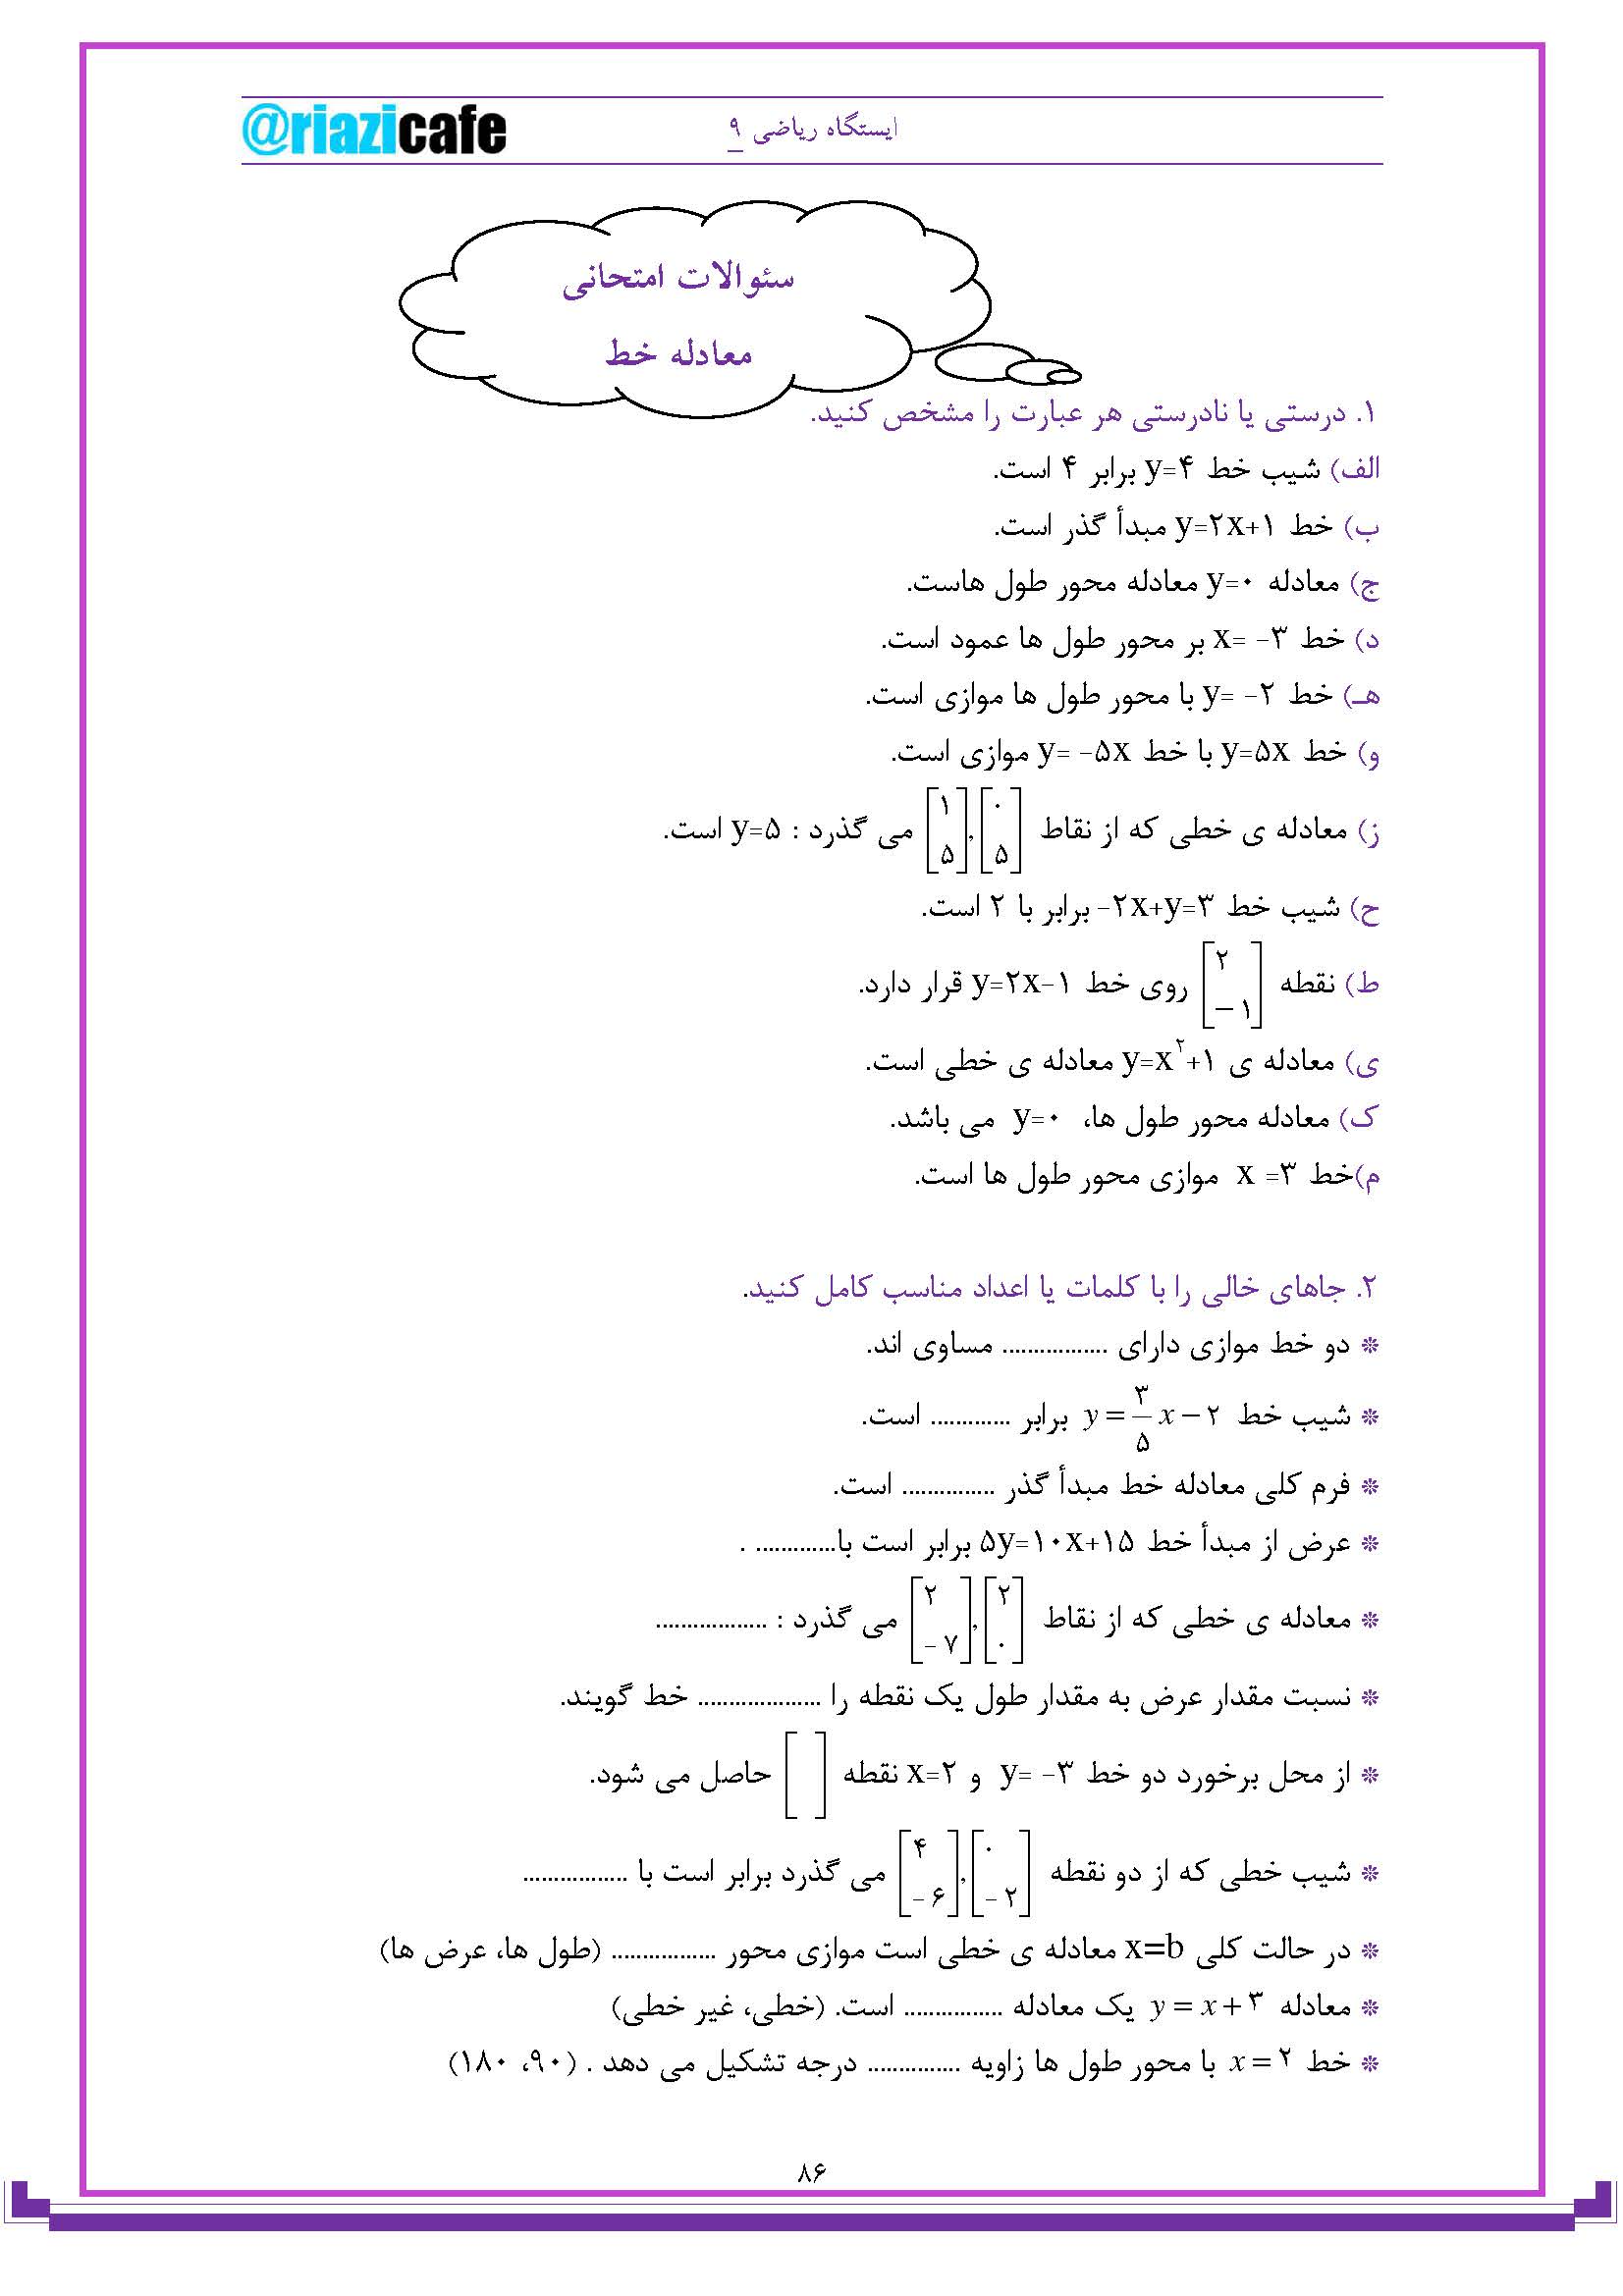 @riazicafe
ایستگاه ریاضی ۹
سئوالات امتحانی
معادله خط
۱. درستی یا نادرستی هر عبارت را مشخص کنید.
الف) شیب خط y=۴ برابر ۴ است.
ب) خط y=۲x+۱ مبدأ گذر است.
ج) معادله y=۰ معادله محور طول هاست.
د) خط x= -۳ بر محور طول ها عمود است.
هـ) خط y= -۲ با محور طول ها موازی است.
و) خط y=۵x با خط y= -۵x موازی است.
ز) معادله ی خطی که از نقاط [۰ ۵] , [۱ ۵] می گذرد : y=۵ است.
ح) شیب خط -۲x+y=۳ برابر با ۲ است.
ط) نقطه [۲ -۱] روی خط y=۲x-۱ قرار دارد.
ی) معادله ی y=x^۲+۱ معادله ی خطی است.
ک) معادله محور طول ها، y=۰ می باشد.
م)خط x =۳ موازی محور طول ها است.
۲. جاهای خالی را با کلمات یا اعداد مناسب کامل کنید.
❊ دو خط موازی دارای ................. مساوی اند.
❊ شیب خط y = ۳/۵ x - ۲ برابر ............. است.
❊ فرم کلی معادله خط مبدأ گذر ............... است.
❊ عرض از مبدأ خط ۵y=۱۰x+۱۵ برابر است با............. .
❊ معادله ی خطی که از نقاط [۲ ۰] , [۲ -۷] می گذرد : ..................
❊ نسبت مقدار عرض به مقدار طول یک نقطه را .................... خط گویند.
❊ از محل برخورد دو خط y= -۳ و x=۲ نقطه [ ] حاصل می شود.
❊ شیب خطی که از دو نقطه [۰ -۲] , [۴ -۶] می گذرد برابر است با .................
❊ در حالت کلی x=b معادله ی خطی است موازی محور ................. (طول ها، عرض ها)
❊ معادله y = x + ۳ یک معادله ................ است. (خطی، غیر خطی)
❊ خط x = ۲ با محور طول ها زاویه ............... درجه تشکیل می دهد . (۹۰، ۱۸۰)
۸۶